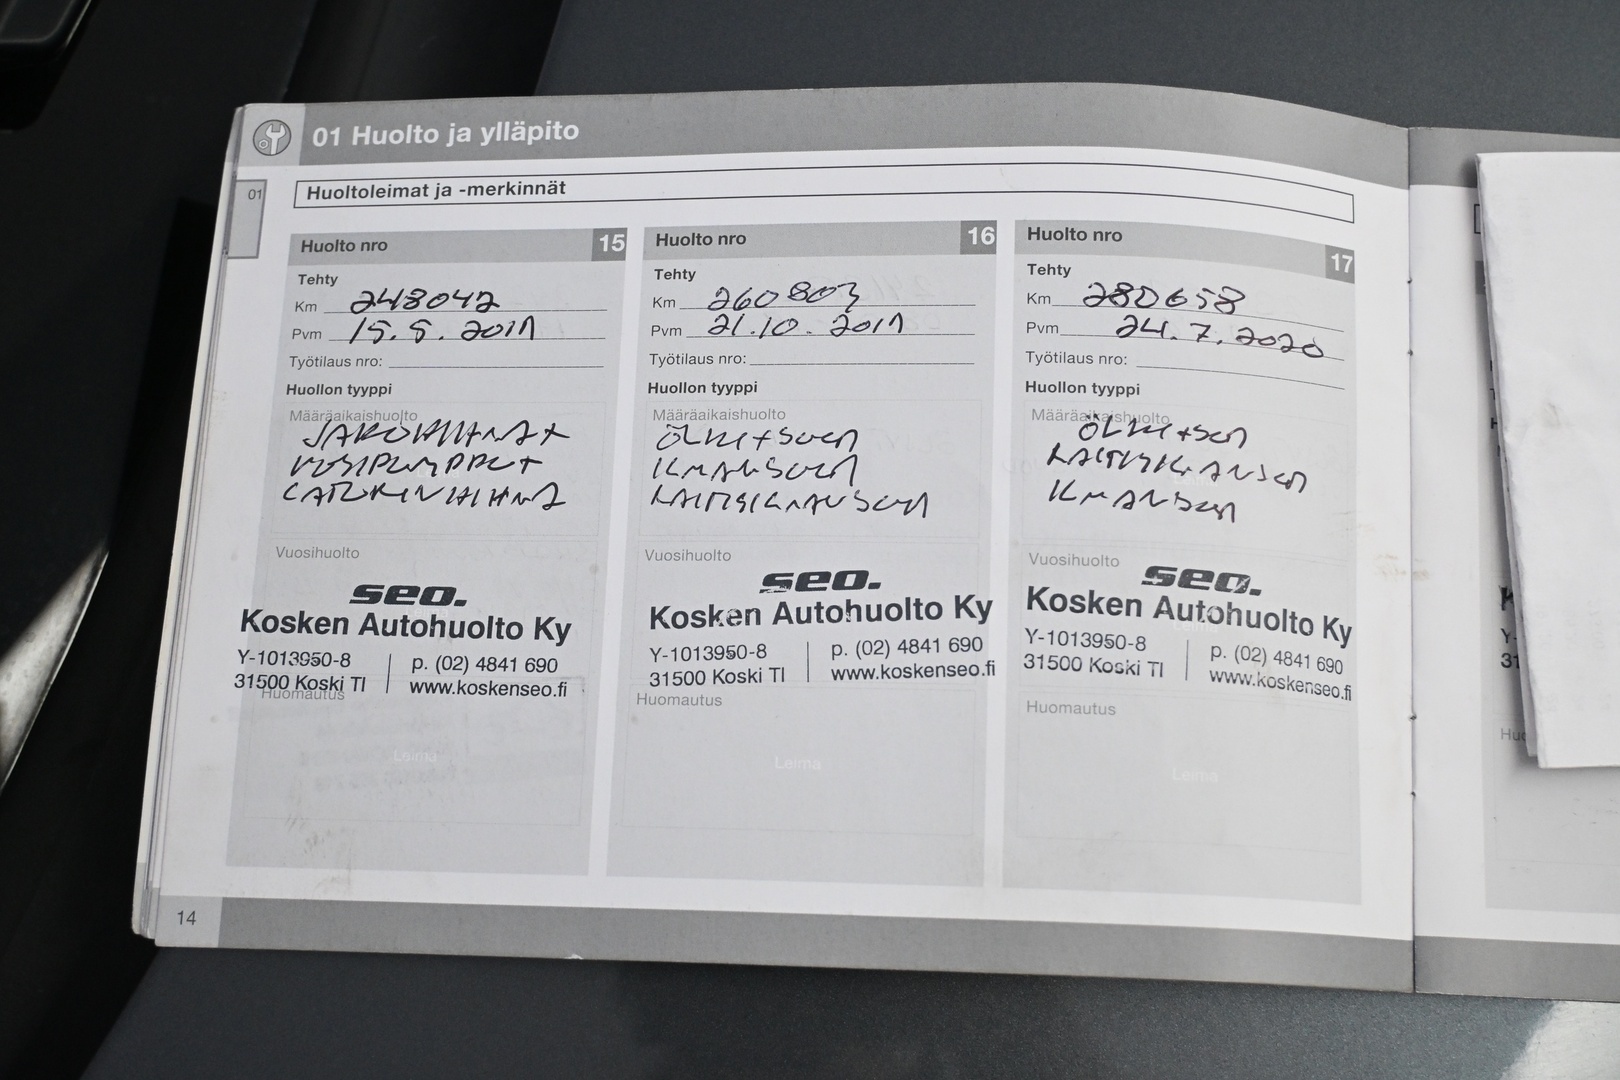 01 Huolto ja ylläpito
01
Huoltoleimat ja -merkinnät
Huolto nro 15
Tehty
Km 248042
Pvm 15.5.2019
Työtilaus nro:
Huollon tyyppi
Määräaikaishuolto
JAKOHIHNA+
VESIPUMPPU+
LATURINHIHNA
Vuosihuolto
seo.
Kosken Autohuolto Ky
Y-1013950-8
31500 Koski Tl
p. (02) 4841 690
www.koskenseo.fi
Huomautus
Leima
Huolto nro 16
Tehty
Km 260803
Pvm 21.10.2019
Työtilaus nro:
Huollon tyyppi
Määräaikaishuolto
ÖLJYT+SUOD
ILMANSUOD
RAITISILMANSUOD
Vuosihuolto
seo.
Kosken Autohuolto Ky
Y-1013950-8
31500 Koski Tl
p. (02) 4841 690
www.koskenseo.fi
Huomautus
Leima
Huolto nro 17
Tehty
Km 280658
Pvm 24.7.2020
Työtilaus nro:
Huollon tyyppi
Määräaikaishuolto
Vuosihuolto
seo.
Kosken Autohuolto Ky
Y-1013950-8
31500 Koski Tl
p. (02) 4841 690
www.koskenseo.fi
Huomautus
Leima
14